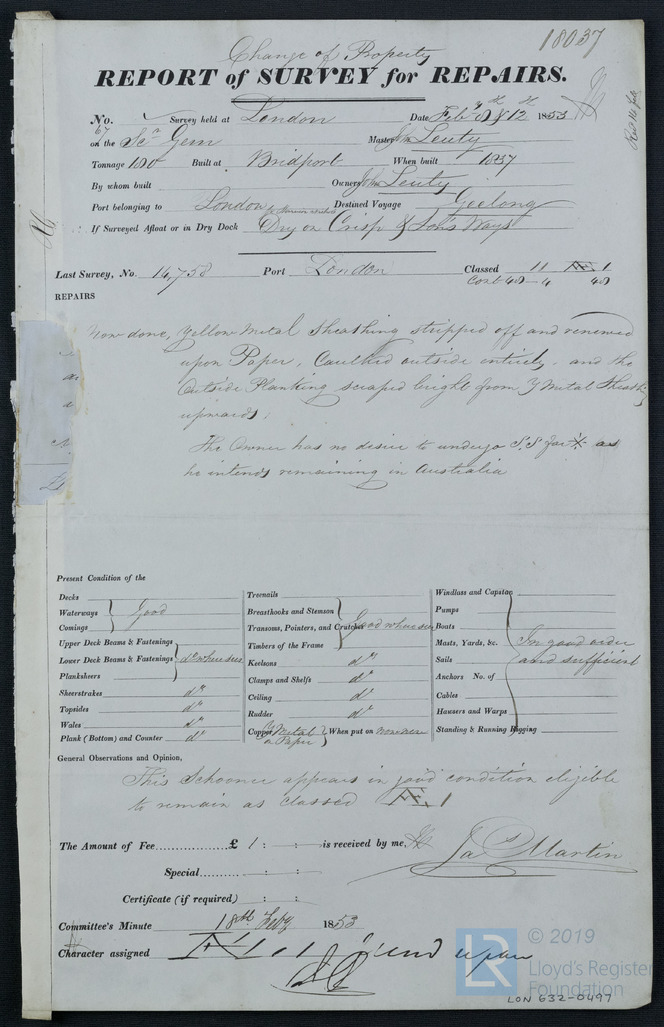 18037
Change of Property
REPORT of SURVEY for REPAIRS.
No. Survey held at London Date Feby 8 & 12th 1853
67 on the Scr Gem Master John Leuty
Tonnage 100 Built at Bridport When built 1837
By whom built Owner John Leuty
Port belonging to London Destined Voyage Geelong
If Surveyed Afloat or in Dry Dock Dry on Crisp & Sons Ways
Last Survey, No. 14,758 Port London Classed 11 Æ 1
REPAIRS
Now done, Yellow Metal Sheathing stripped off and renewed
upon Paper, Caulked outside entirely, and the
Outside Planking scraped bright from Y Metal Sheath
upwards.
The Owner has no desire to undergo S.S for as
he intends remaining in Australia
Present Condition of the
Decks
Waterways Good
Comings
Upper Deck Beams & Fastenings
Lower Deck Beams & Fastenings do where seen
Planksheers
Sheerstrakes do
Topsides do
Wales do
Plank (Bottom) and Counter do
Treenails
Breasthooks and Stemson
Transoms, Pointers, and Crutches Good where seen
Timbers of the Frame
Keelsons do
Clamps and Shelfs do
Ceiling do
Rudder do
Copper Y Metal on Paper When put on now new
Windlass and Capstan
Pumps
Boats
Masts, Yards, &c. In good order
Sails and sufficient
Anchors No. of
Cables
Hausers and Warps
Standing & Running Rigging
General Observations and Opinion,
This Schooner appears in good condition eligible
to remain as classed Æ 1
The Amount of Fee £ 1 : : is received by me,
Jas Martin
Special : :
Certificate (if required) : :
Committee's Minute 18th Feby 1853
Character assigned Æ 1
upon
LR © 2019
Lloyd's Register
Foundation
LON 632-0497